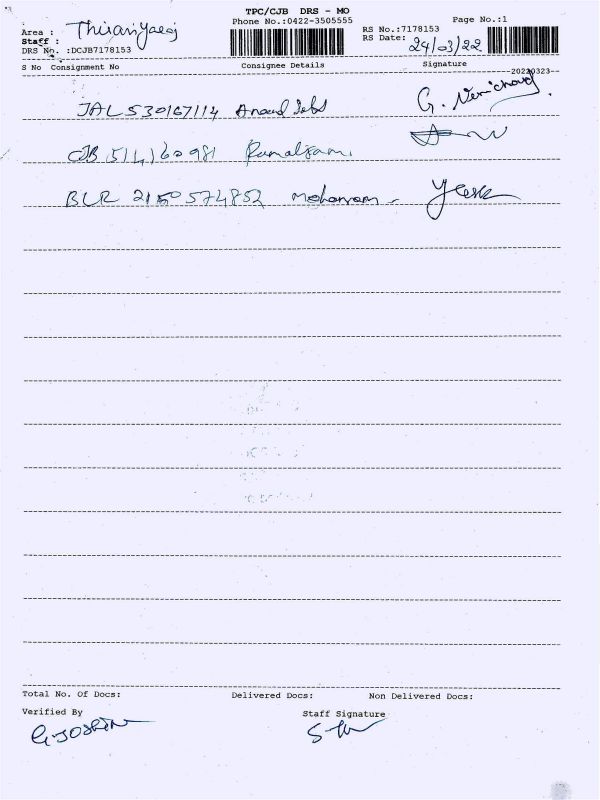 TPC/CJB DRS - MO
Phone No.:0422-3505555 Page No.:1
Area :
Staff : RS No.:7178153
DRS No. :DCJB7178153 RS Date: 24/03/22
S No Consignment No Consignee Details Signature
20220323
JAL 530167114 Anand
CJB 514160981
BLR
Total No. Of Docs: Delivered Docs: Non Delivered Docs:
Verified By Staff Signature
G. JOSHIN